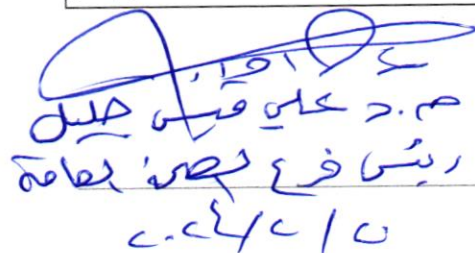 م.د علي قيس خليل
رئيس فرع الصحة العامة
٢٠٢٤/٢/٥